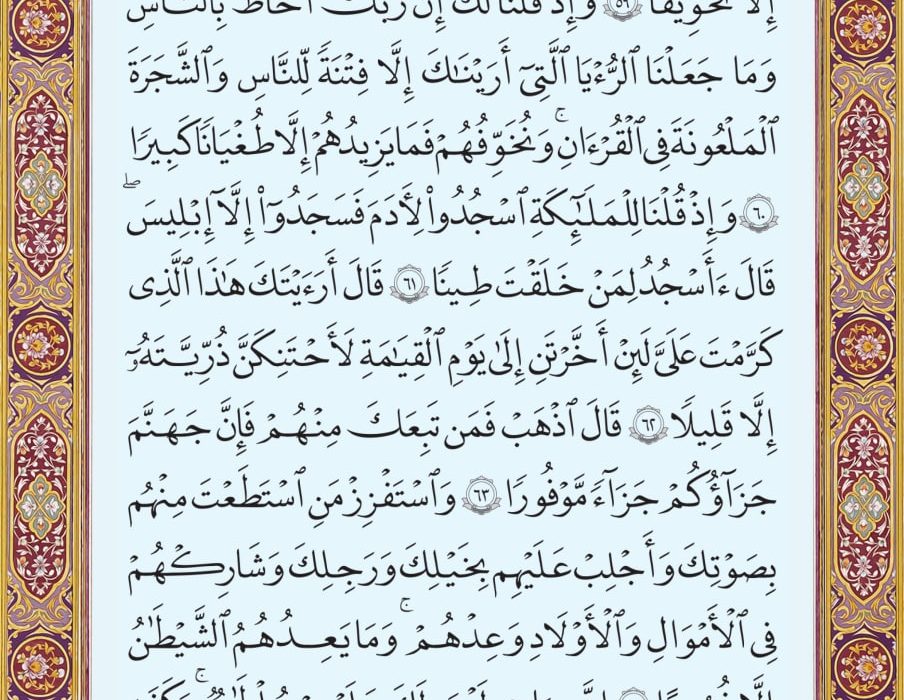 إِلَّا تَخْوِيفًا ٥٩ وَإِذْ قُلْنَا لَكَ إِنَّ رَبَّكَ أَحَاطَ بِٱلنَّاسِ
وَمَا جَعَلْنَا ٱلرُّءْيَا ٱلَّتِىٓ أَرَيْنَٰكَ إِلَّا فِتْنَةً لِّلنَّاسِ وَٱلشَّجَرَةَ
ٱلْمَلْعُونَةَ فِى ٱلْقُرْءَانِ ۚ وَنُخَوِّفُهُمْ فَمَا يَزِيدُهُمْ إِلَّا طُغْيَانًا كَبِيرًا
٦٠ وَإِذْ قُلْنَا لِلْمَلَٰٓئِكَةِ ٱسْجُدُوا۟ لِأَدَمَ فَسَجَدُوٓا۟ إِلَّآ إِبْلِيسَ ۖ
قَالَ ءَأَسْجُدُ لِمَنْ خَلَقْتَ طِينًا ٦١ قَالَ أَرَءَيْتَكَ هَٰذَا ٱلَّذِى
كَرَّمْتَ عَلَىَّ لَئِنْ أَخَّرْتَنِ إِلَىٰ يَوْمِ ٱلْقِيَٰمَةِ لَأَحْتَنِكَنَّ ذُرِّيَّتَهُۥٓ
إِلَّا قَلِيلًا ٦٢ قَالَ ٱذْهَبْ فَمَن تَبِعَكَ مِنْهُمْ فَإِنَّ جَهَنَّمَ
جَزَآؤُكُمْ جَزَآءً مَّوْفُورًا ٦٣ وَٱسْتَفْزِزْ مَنِ ٱسْتَطَعْتَ مِنْهُم
بِصَوْتِكَ وَأَجْلِبْ عَلَيْهِم بِخَيْلِكَ وَرَجِلِكَ وَشَارِكْهُمْ
فِى ٱلْأَمْوَٰلِ وَٱلْأَوْلَٰدِ وَعِدْهُمْ ۚ وَمَا يَعِدُهُمُ ٱلشَّيْطَٰنُ